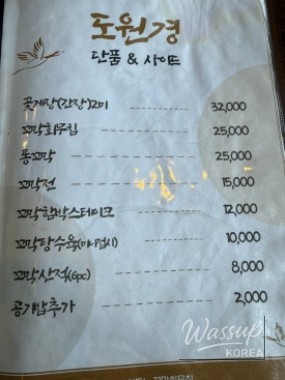 도원경
단품 & 사이드
꽃게장(간장)2미 32,000
꼬막회무침 25,000
통꼬막 25,000
꼬막전 15,000
꼬막함박스테이크 12,000
꼬막탕수육(미니접시) 10,000
꼬막산적(6pc) 8,000
공기밥추가 2,000
Wassup
KOREA